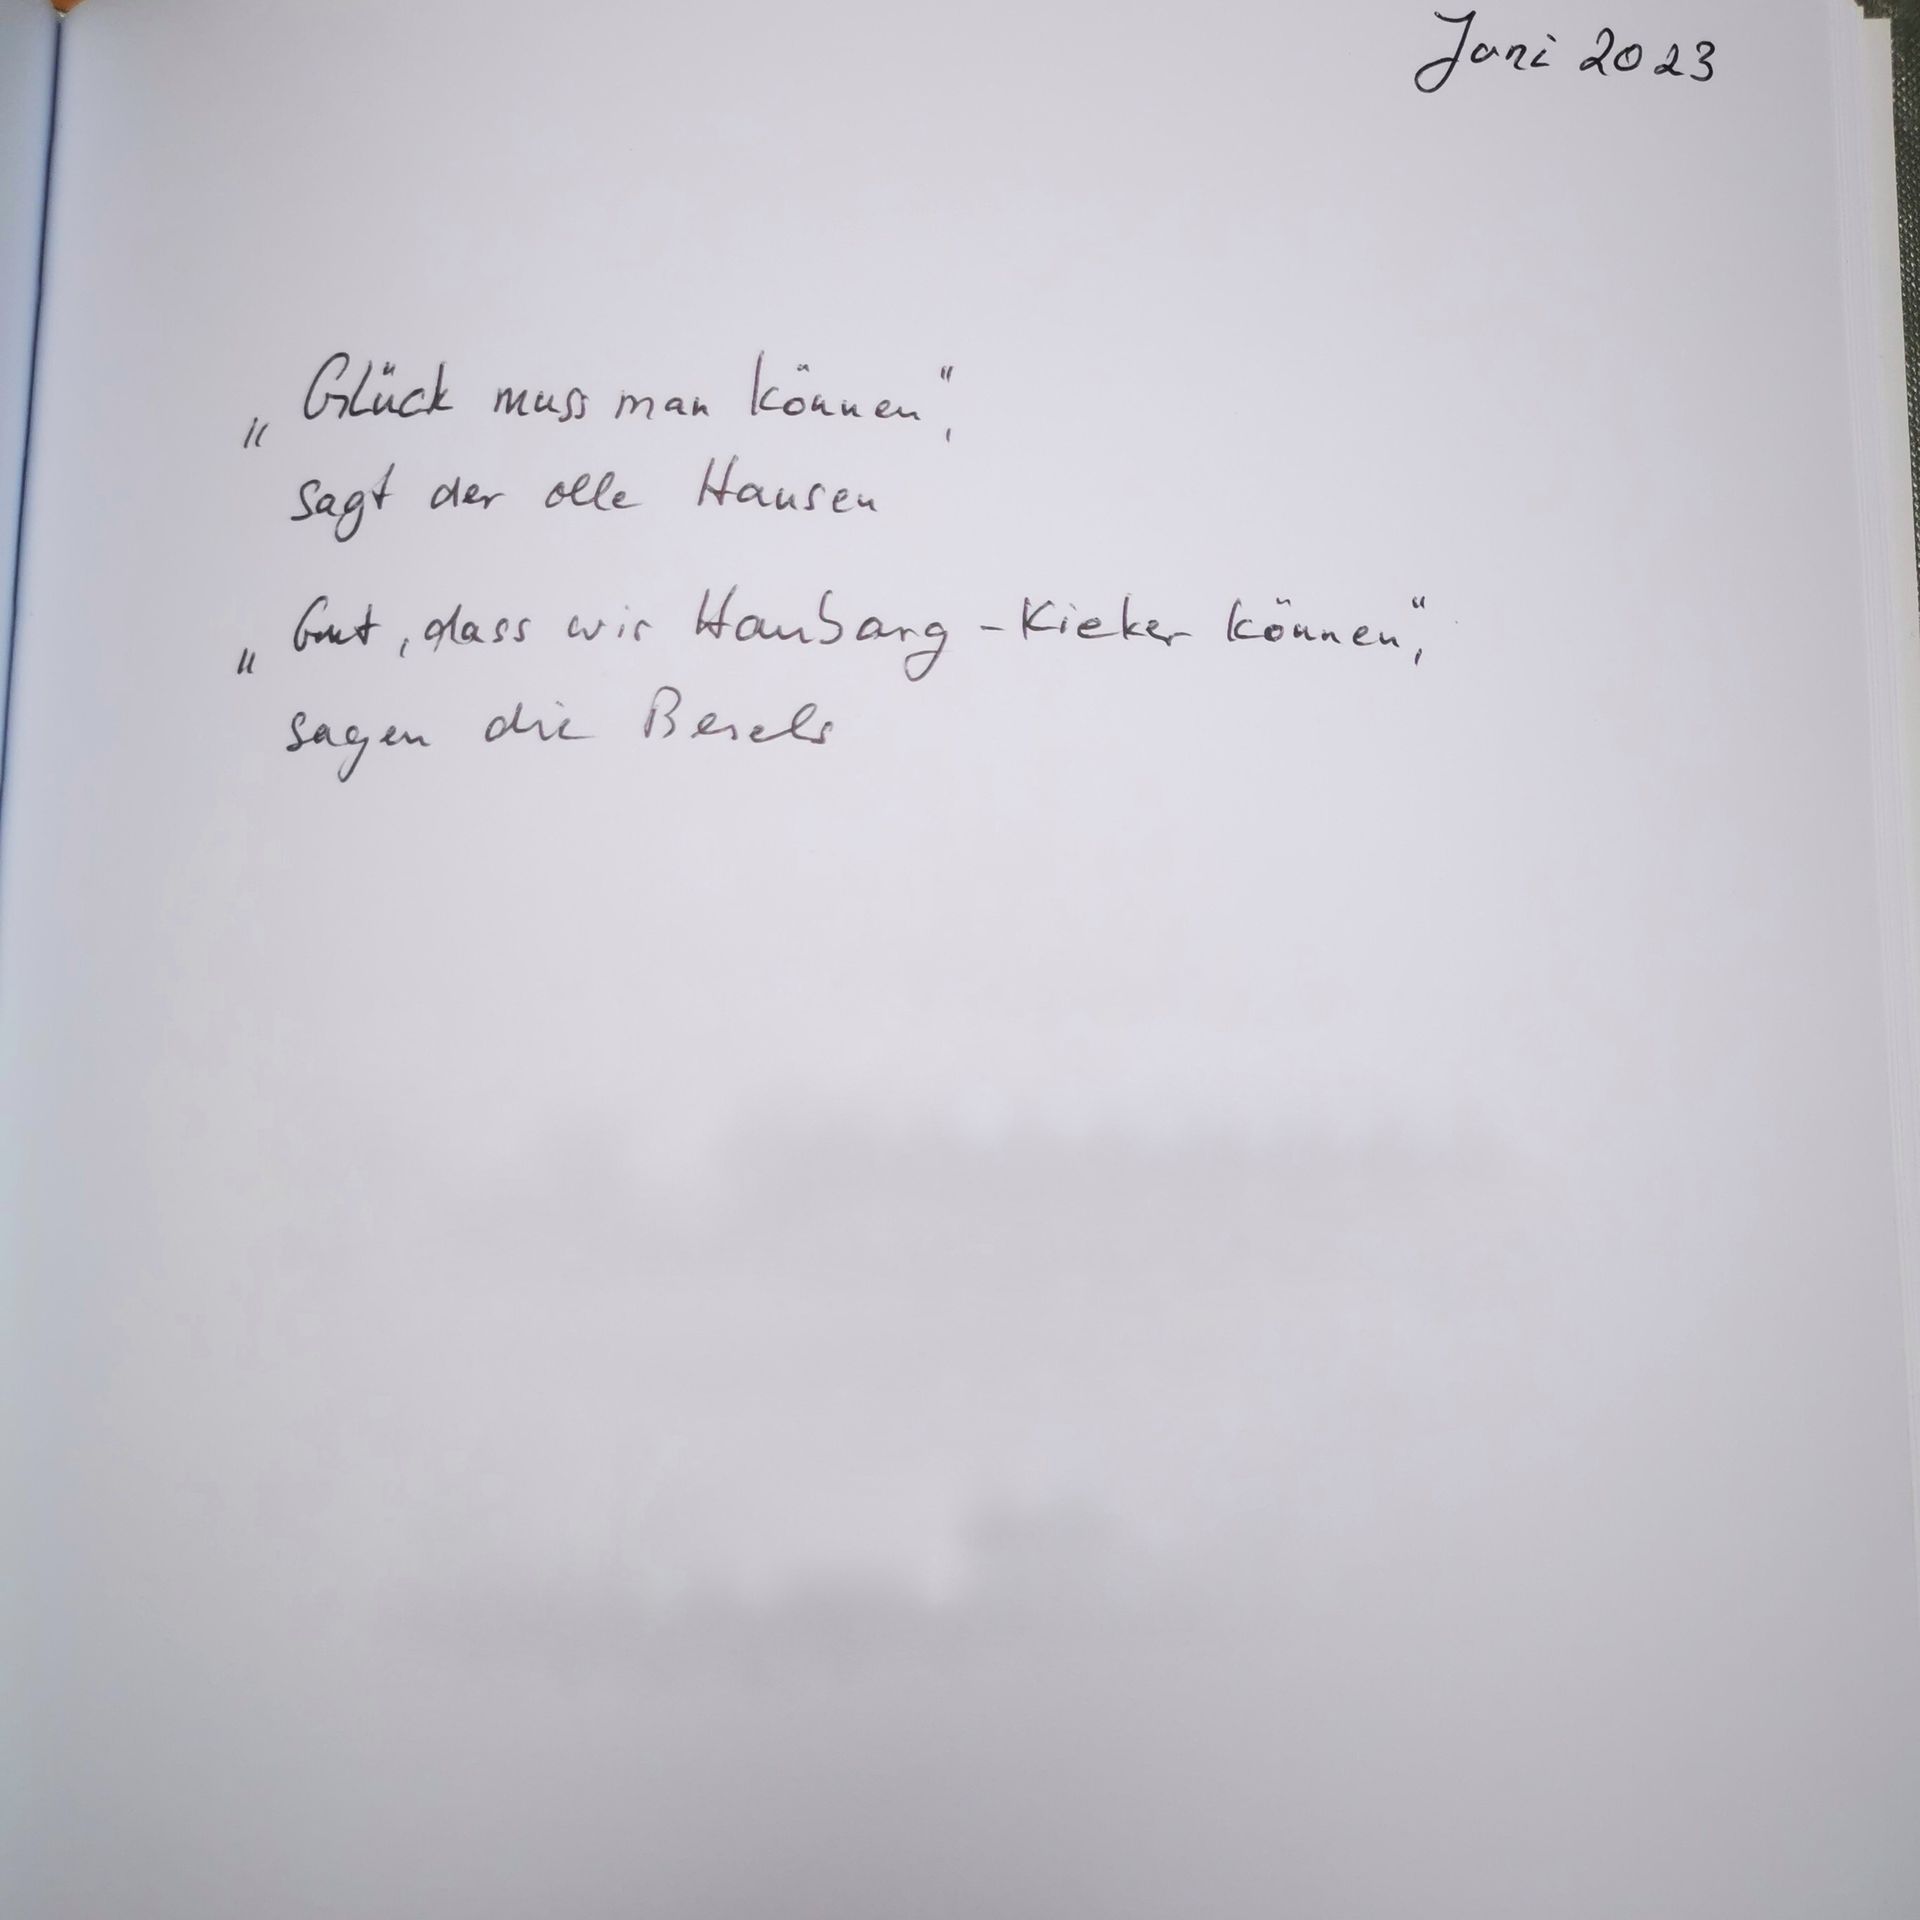 Juni 2023
„Glück muss man können“,
sagt der olle Hansen
„Gut, dass wir Haubarg-Kieker können“,
sagen die